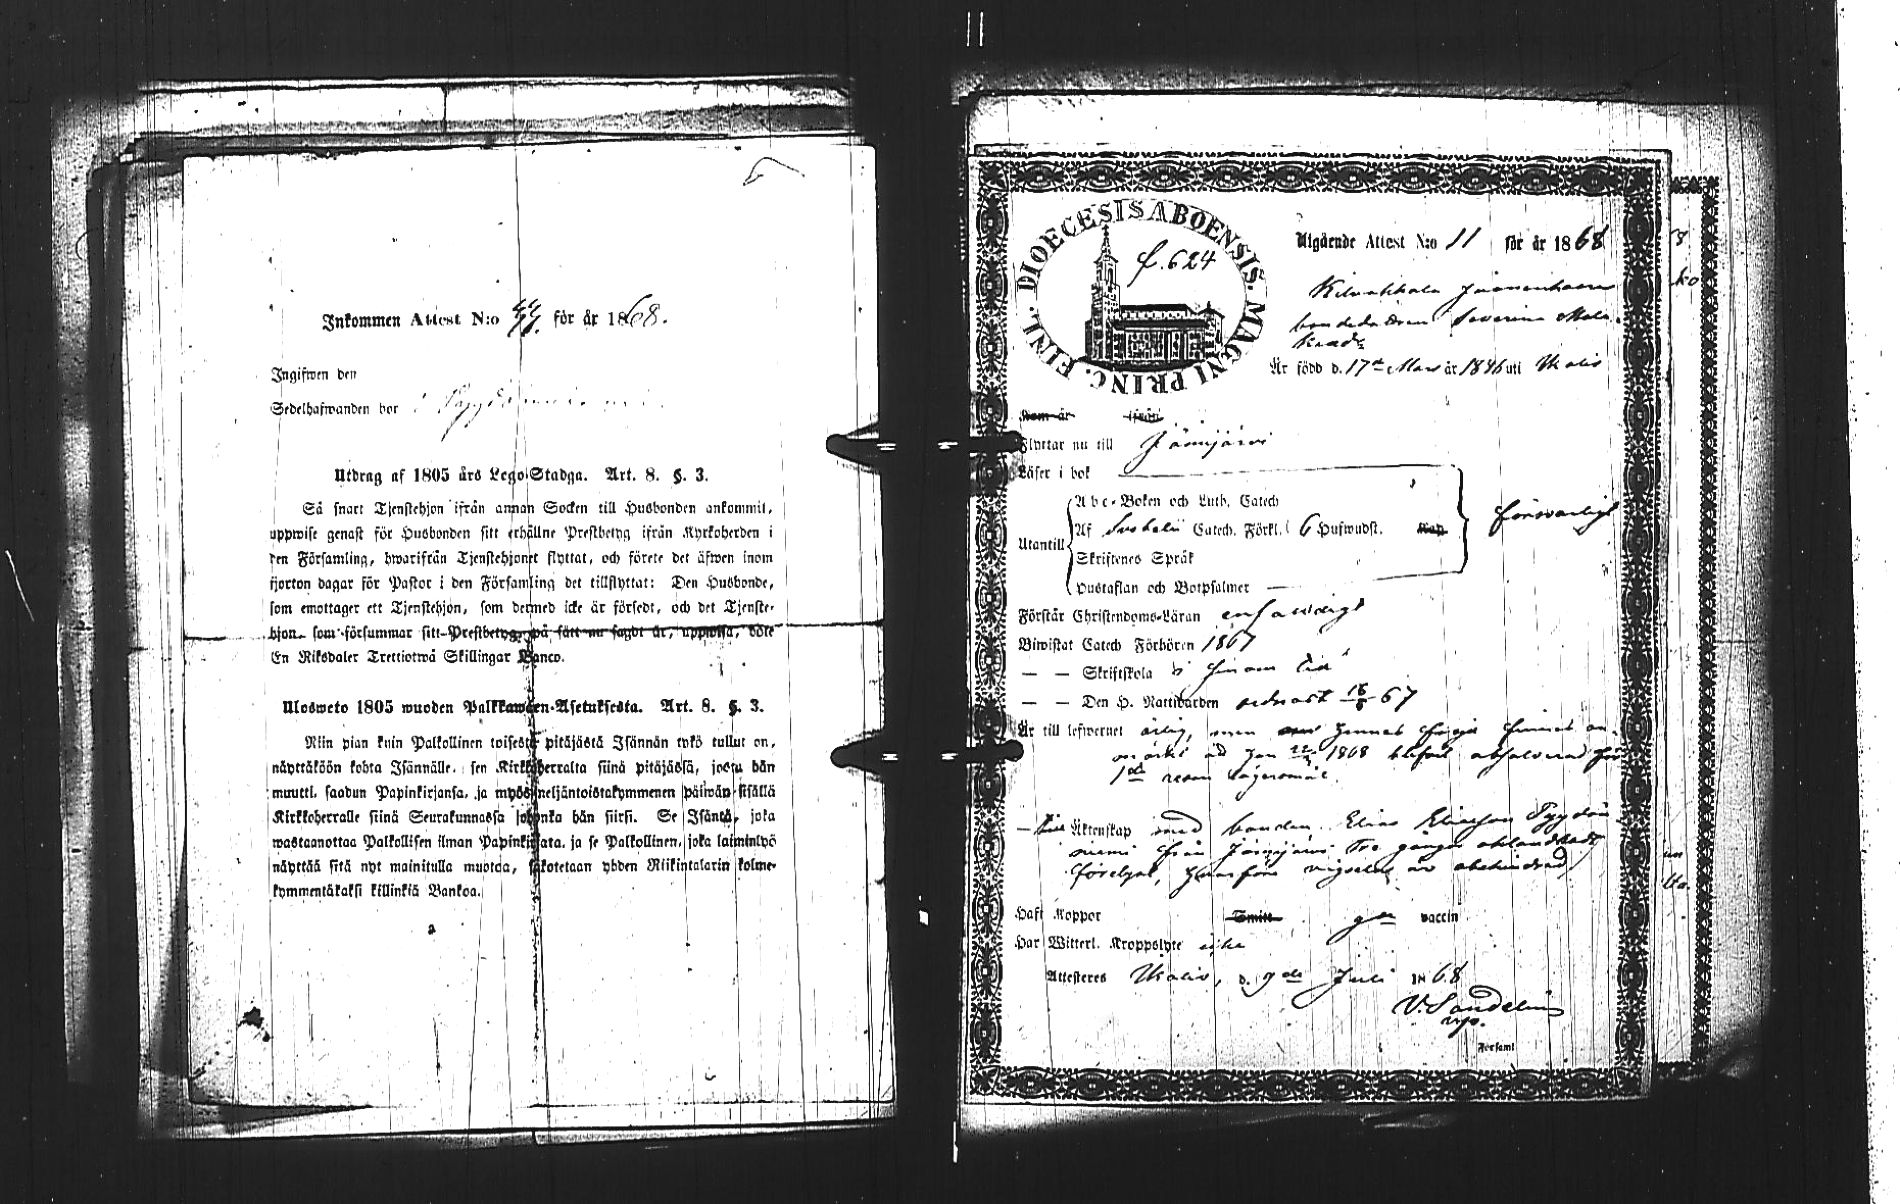 Inkommen Attest N:o 44 för år 1868.
Ingifwen den
Sedelhafwanden bor i
Utdrag af 1805 års Lego-Stadga. Art. 8. §. 3.
Så snart Tjenstehjon ifrån annan Socken till Husbonden ankommit,
uppwise genast för Husbonden sitt erhållne Prestbetyg ifrån Kyrkoherden i
den Församling, hwarifrån Tjenstehjonet flyttat, och förete det äfwen inom
fjorton dagar för Pastor i den Församling det tillflyttat: Den Husbonde,
som emottager ett Tjenstehjon, som dermed icke är försedt, och det Tjenste-
hjon som försummar sitt Prestbetyg, på sätt nu sagdt är, uppwisa, böte
En Riksdaler Trettiotwå Skillingar Banco.
Ulosweto 1805 wuoden Palkkawäen-Asetuksesta. Art. 8. §. 3.
Niin pian kuin Palkollinen toisesta pitäjästä Isännän tykö tullut on,
näyttäköön kohta Isännälle, sen Kirkkoherralta siinä pitäjässä, josta hän
muutti, saadun Papinkirjansa, ja myös neljäntoistakymmenen päiwän sisällä
Kirkkoherralle siinä Seurakunnassa johonka hän siirsi. Se Isäntä, joka
wastaanottaa Palkollisen ilman Papinkirjata, ja se Palkollinen, joka laiminlyö
näyttää sitä nyt mainitulla muotoa, sakotetaan yhden Riikintalarin kolme-
kymmentäkaksi killinkiä Bankoa.
DIOECESIS ABOENSIS. MAGNI PRINC. FINL.
f. 624
Utgående Attest N:o 11 för år 1868
Kilvakkala
bondedottren Severina
Är född d. 17de Mars år 1846 uti Ikalis
Kom år ifrån
Flyttar nu till Jämijärvi
Läser i bok
Abc-Boken och Luth. Catech
Utantill Af Svebelii Catech. Förkl. 6 Hufwudst. Kap försvarligt
Skriftenes Språk
Hustaflan och Botpsalmer
Förstår Christendoms-Läran enfaldigt
Biwistat Catech Förhören 1867
— — Skriftskola i sinom tid
— — Den H. Nattwarden sednast 67
Är till lefwernet ärlig, men finnes an-
märkt 1868 blifvit absolverad för
1sta resan lägersmål.
till Äktenskap med bonden Elias Eliasson
från Jämijärvi tre gånger
är obehindrad
Haft Koppor Smitt gm vaccin
Har Witterl. Kroppslyte icke
Attesteres Ikalis, d. 9de Juli 1868
V. Sandelin
vp.
Forsaml